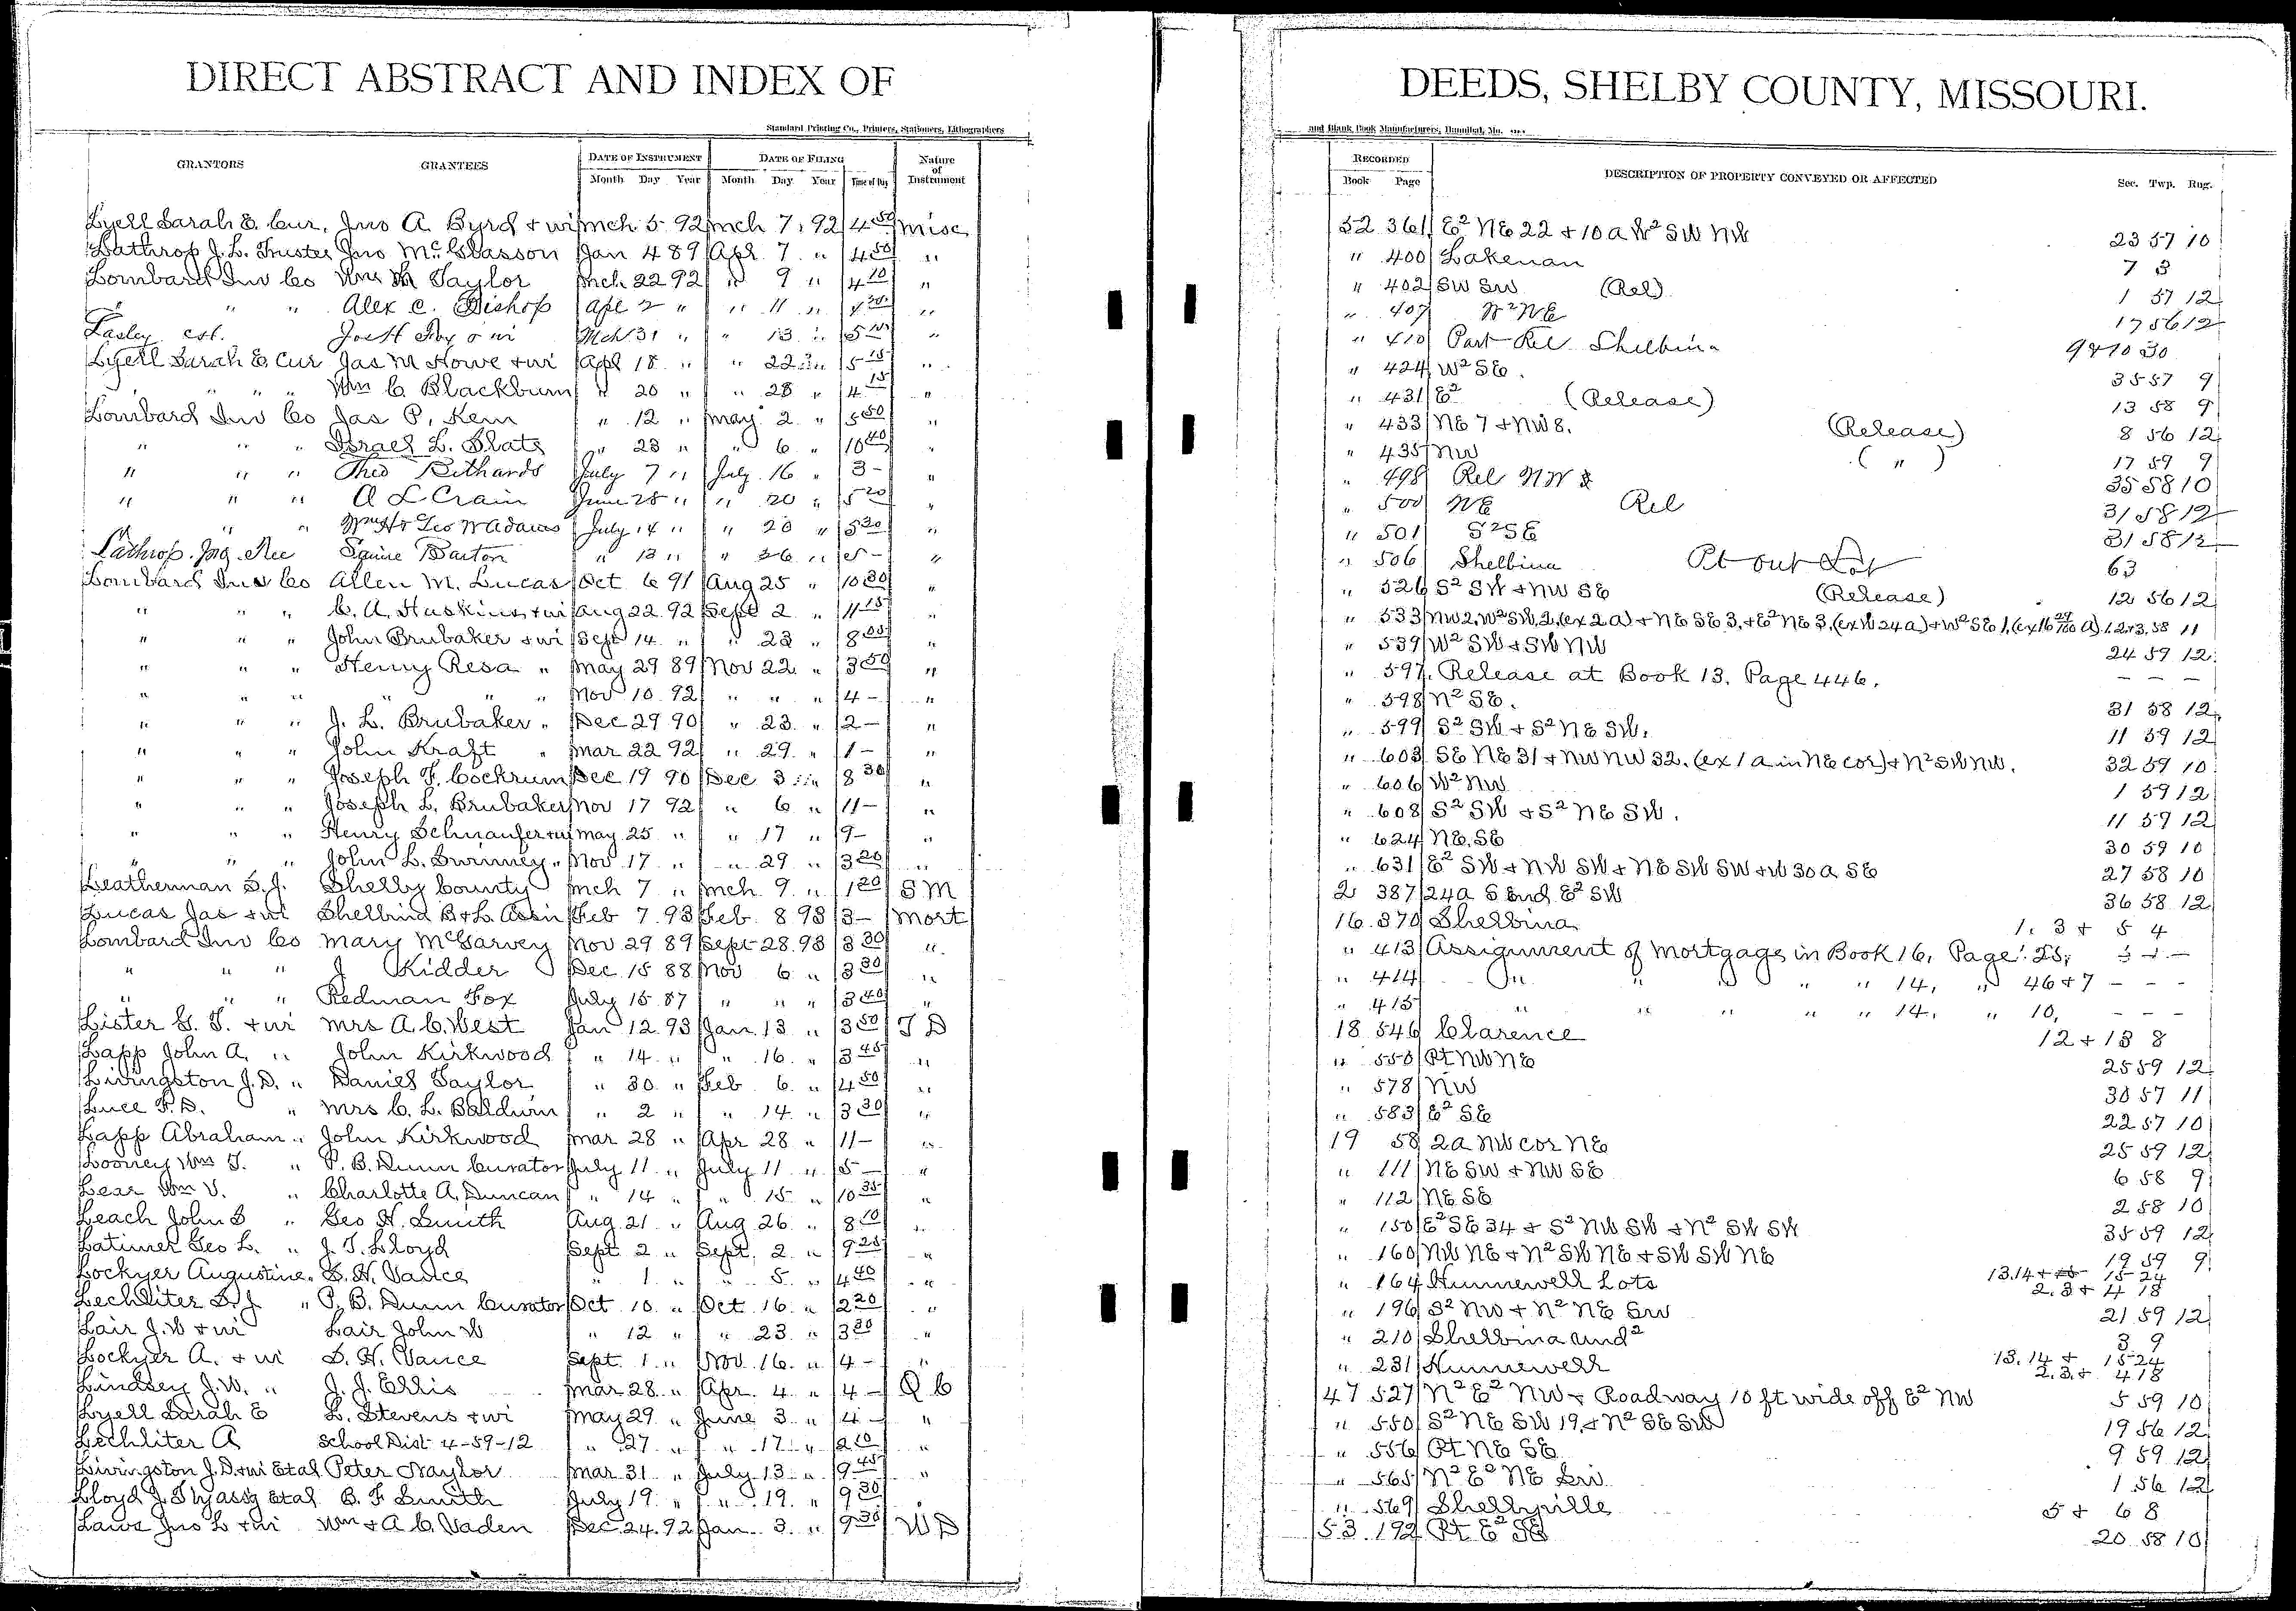 DIRECT ABSTRACT AND INDEX OF
Standard Printing Co., Printers, Stationers, Lithographers
GRANTORS GRANTEES DATE OF INSTRUMENT DATE OF FILING Nature of Instrument
Month Day Year Month Day Year Time of Day
Lyell Sarah E. Cur. Jno A. Byrd + wi Mch 5 92 Mch 7 92 4 50 Misc
Lathrop J. L. Trustee Jno McGlasson Jan 4 89 Apr 7 " 4 50 "
Lombard Inv Co Wm M Taylor Mch 22 92 " 9 " 4 10 "
" " Alex C. Bishop Apl 2 " " 11 "
Lasley est. Mch 31 " " 13 " "
Lyell Sarah E. Cur Jas M Howe + wi Apl 18 " " 22 " 5 15 "
" " " Wm C. Blackburn " 20 " " 28 " 4 15 "
Lombard Inv Co Jas P. Kem " 12 " May 2 " 5 50 "
" " " Israel L. Slate " 23 " " 6 " 10 40 "
" " " Theo Rethards July 7 " July 16 " 3 - "
" " " A L Crain June 28 " " 20 " 5 20 "
" " July 14 " " 20 " 5 20 "
Lathrop Squire Barton " 13 " " 26 " 5 - "
Lombard Inv Co Allen M. Lucas Oct 6 91 Aug 25 " 10 30 "
" " " C. A. Huskins + wi Aug 22 92 Sept 2 " 11 15 "
" " " John Brubaker + wi Sept 14 " " 23 " 8 05 "
" " " Henry Resa " May 29 89 Nov 22 " 3 50 "
" " " " " " Nov 10 92 " " " 4 - "
" " " J. L. Brubaker " Dec 29 90 " 23 " 2 - "
" " " John Kraft " Mar 22 92 " 29 " 1 - "
" " " Joseph F. Cockrum Dec 19 90 Dec 3 " 8 30 "
" " " Joseph L. Brubaker Nov 17 92 " 6 " 11 - "
" " " Henry Schnaufer + wi May 25 " " 17 " 9 - "
" " " John L. Swinney " Nov 17 " " 29 " 3 20 "
Leatherman S. J. Shelby County Mch 7 " Mch 9 " 1 20 S M
Lucas Jas + wi Shelbina B + L Assn Feb 7 93 Feb 8 93 3 - Mort
Lombard Inv Co Mary McGarvey Nov 29 89 Sept 28 93 3 30 "
" " " J Kidder Dec 15 88 Nov 6 " 3 30 "
" " " Redman Fox July 15 87 " " " 3 40 "
Lister G. T. + wi Mrs A. C. West Jan 12 93 Jan 13 " 3 50 T D
Lapp John A. " John Kirkwood " 14 " " 16 " 3 45 "
Livingston J. D. " Daniel Taylor " 30 " Feb 6 " 4 50 "
Luce F. D. " Mrs C. L. Baldwin " 2 " " 14 " 3 30 "
Lapp Abraham " John Kirkwood Mar 28 " Apr 28 " 11 - "
Looney Wm T. " P. B. Dunn Curator July 11 " July 11 " 5 - "
Lear Wm V. " Charlotte A. Duncan " 14 " " 15 " 10 35 "
Leach John S " Geo H. Smith Aug 21 " Aug 26 " 8 10 "
Latimer Geo L. " J. T. Lloyd Sept 2 " Sept 2 " 9 25 "
Lockyer Augustine. S. H. Vance " 1 " " 5 " 4 40 "
Lechliter S. J " P. B. Dunn Curator Oct 10 " Oct 16 " 2 20 "
Lair J. W + wi Lair John W " 12 " " 23 " 3 20 "
Lockyer A. + wi S. H. Vance Sept 1 " Nov 16 " 4 - "
Lindsey J. W. " J. J. Ellis Mar 28 " Apr 4 " 4 - Q C
Lyell Sarah E L. Stevens + wi May 29 " June 3 " 4 - "
Lechliter A School Dist 4-59-12 " 27 " " 17 " 2 10 "
Livingston J. D. + wi Etal Peter Naylor Mar 31 " July 13 " 9 45 "
Lloyd J. T by assg Etal B. F Smith July 19 " " 19 " 9 30 "
Laws Jno L + wi Wm + A. C. Vaden Dec 24 92 Jan 3 " 9 30 W D
DEEDS, SHELBY COUNTY, MISSOURI.
and Blank Book Manufacturers, Hannibal, Mo.
RECORDED DESCRIPTION OF PROPERTY CONVEYED OR AFFECTED Sec. Twp. Rng.
Book Page
52 361 E2 NE 22 + 10 a W2 SW NW 23 57 10
" 400 Lakenan 7 3
" 402 SW SW (Rel) 1 57 12
" 407 N2 NE 17 56 12
" 410 Part Rel Shelbina 9 & 10 30
" 424 W2 SE. 35 57 9
" 431 E2 (Release) 13 58 9
" 433 NE 7 + NW 8. (Release) 8 56 12
" 435 NW ( " ) 17 59 9
" 498 Rel NW 35 58 10
" 500 NE Rel 31 58 12
" 501 S2 SE 31 58 12
" 506 Shelbina Pt out Lot 63
" 526 S2 SW + NW SE (Release) 12 56 12
" 533 NW 2, W2 SW, 2, (ex 2 a) + NE SE 3, + E2 NE 3, (ex W 24 a) + W2 SE 1, (ex 16 24/100 a) 1. 2 + 3, 58 11
" 539 W2 SW + SW NW 24 59 12
" 597 Release at Book 13. Page 446. - - -
" 598 N2 SE. 31 58 12
" 599 S2 SW + S2 NE SW. 11 59 12
" 603 SE NE 31 + NW NW 32. (ex 1 a in NE cor) + N2 SW NW. 32 59 10
" 606 W2 NW 1 59 12
" 608 S2 SW + S2 NE SW. 11 59 12
" 624 NE. SE 30 59 10
" 631 E2 SW + NW SW + NE SW SW + W 30 a SE 27 58 10
2 387 24 a S End E2 SW 36 58 12
16 370 Shelbina 1. 3 + 5 4
" 413 Assignment of Mortgage in Book 16, Page 25, - - -
" 414 " " " " " 14, " 46 + 7 - - -
" 415 " " " " " 14, " 10, - - -
18 546 Clarence 12 + 13 8
" 550 Pt NW NE 25 59 12
" 578 NW 30 57 11
" 583 E2 SE 22 57 10
19 58 2 a NW cor NE 25 59 12
" 111 NE SW + NW SE 6 58 9
" 112 NE SE 2 58 10
" 150 E2 SE 34 + S2 NW SW + N2 SW SW 35 59 12
" 160 NW NE + N2 SW NE + SW SW NE 19 59 9
" 164 Hunnewell Lots 13. 14 + 15 24
2. 3 + 4 18
" 196 S2 NW + N2 NE SW 21 59 12
" 210 Shelbina und 2 3 9
" 231 Hunnewell 13. 14 + 15 24
2. 3. + 4 18
47 527 N2 E2 NW + Roadway 10 ft wide off E2 NW 5 59 10
" 550 S2 NE SW 19. + N2 SE SW 19 56 12
" 556 Pt NE SE 9 59 12
" 565 N2 E2 NE SW 1 56 12
" 569 Shelbyville 5 + 6 8
53 192 Pt E2 SE 20 58 10